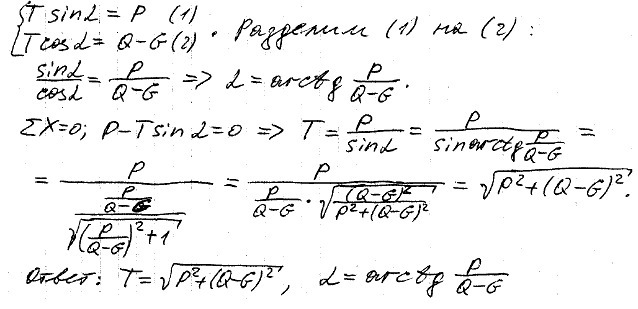 {T sin α = P (1)
{T cos α = Q-G (2) . Разделим (1) на (2) :
sin α / cos α = P/(Q-G) => α = arctg P/(Q-G).
ΣX=0; P-T sin α = 0 => T = P/sin α = P/(sin arctg P/(Q-G)) =
= P/((P/(Q-G))/√((P/(Q-G))²+1)) = P/(P/(Q-G) · √((Q-G)²/(P²+(Q-G)²))) = √(P²+(Q-G)²).
Ответ: T = √(P²+(Q-G)²), α = arctg P/(Q-G)